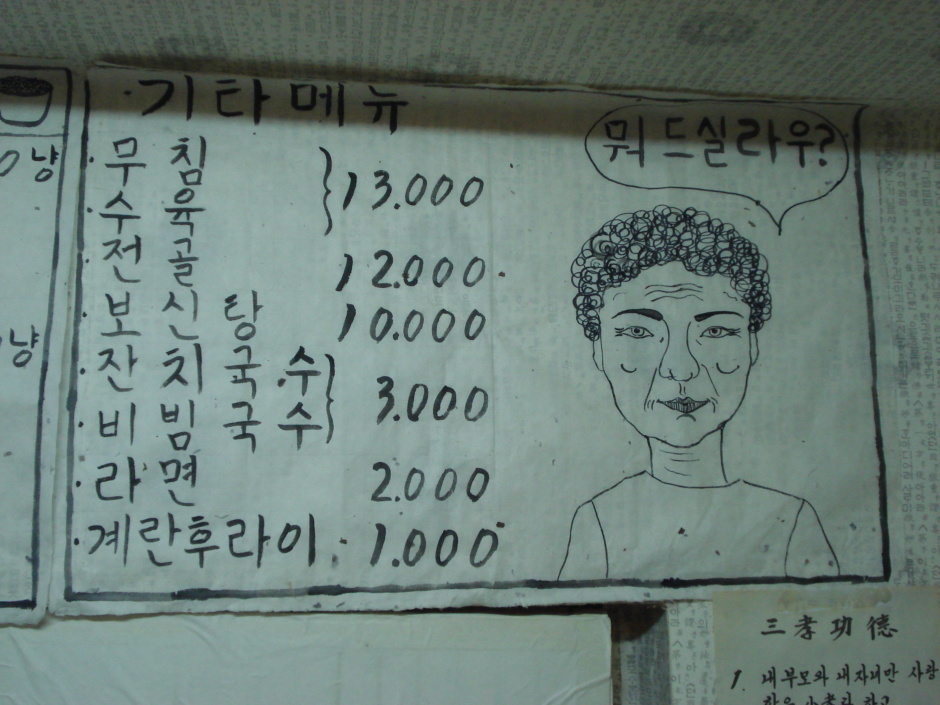 기타메뉴
뭐 드실라우?
0냥
냥
· 무 침
· 수 육 } 13.000
· 전 골 12.000
· 보 신 탕 10.000
· 잔 치 국 수
· 비 빔 국 수 } 3.000
· 라 면 2.000
· 계란후라이 · 1.000
三孝功德
1. 내 부모와 내 자녀만 사랑